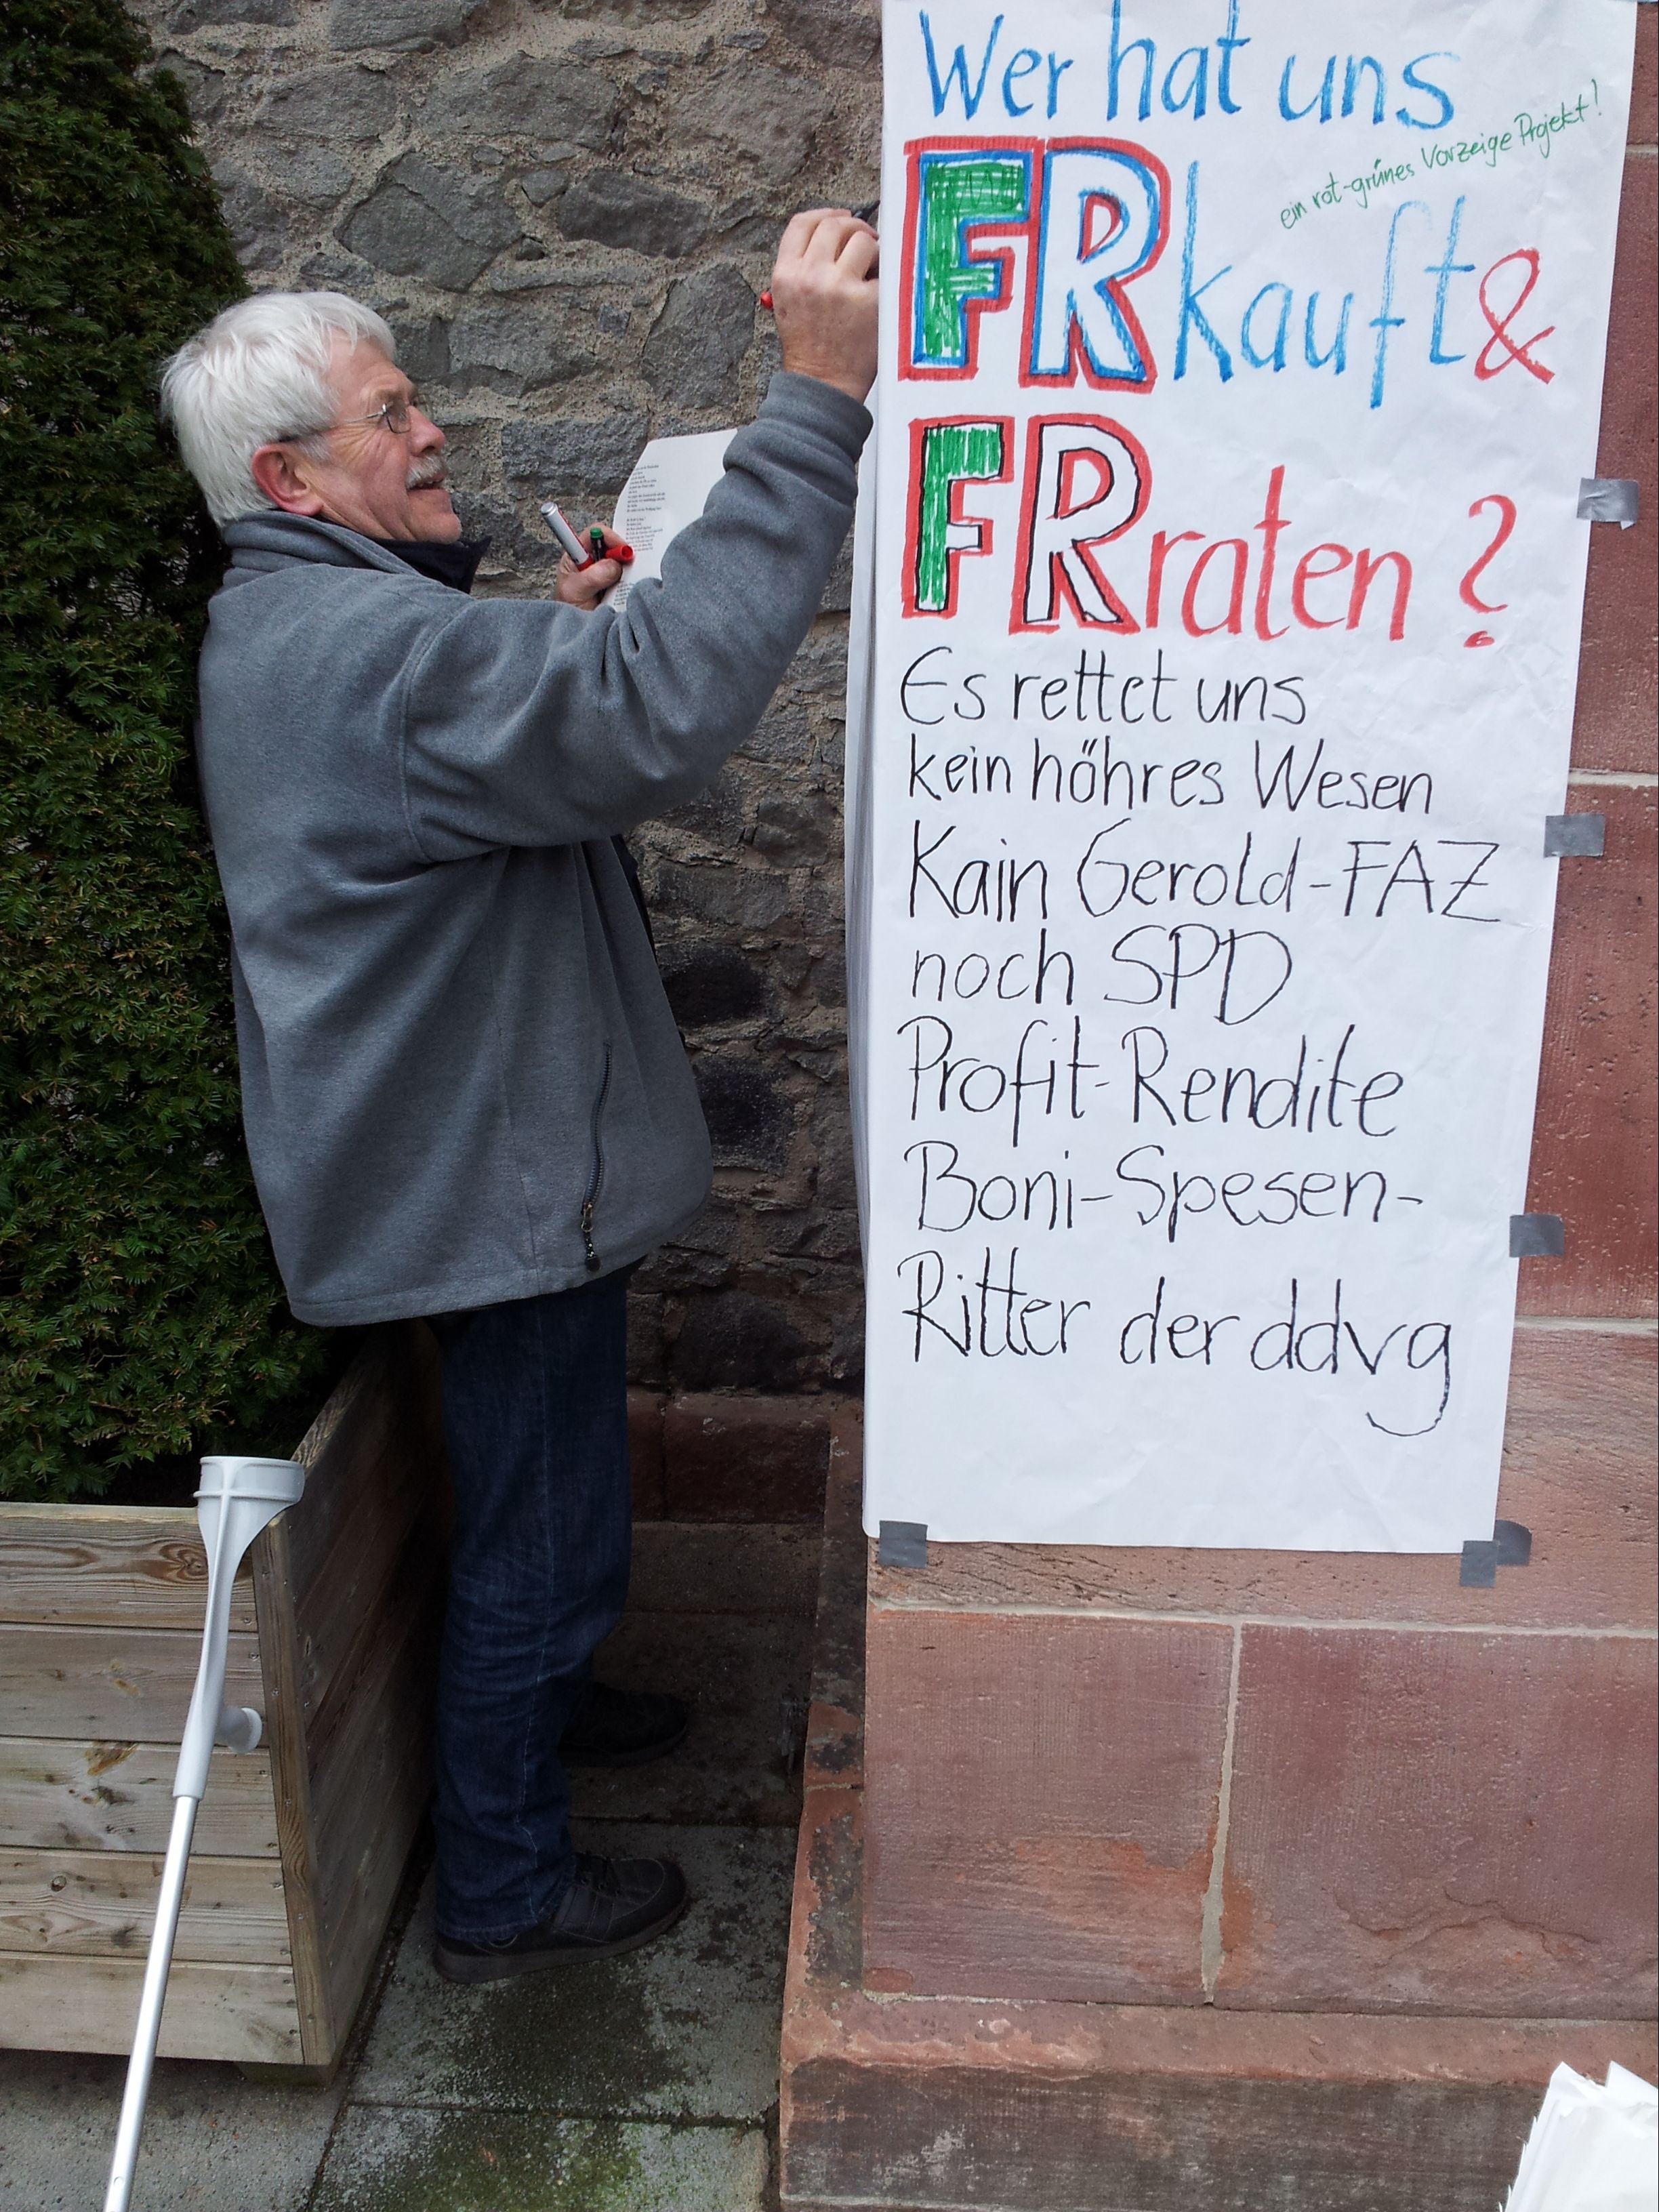 Wer hat uns
ein rot-grünes Vorzeige Projekt!
FRkauft &
FRraten?
Es rettet uns
kein höhres Wesen
Kain Gerold-FAZ
noch SPD
Profit-Rendite
Boni-Spesen-
Ritter der ddvg